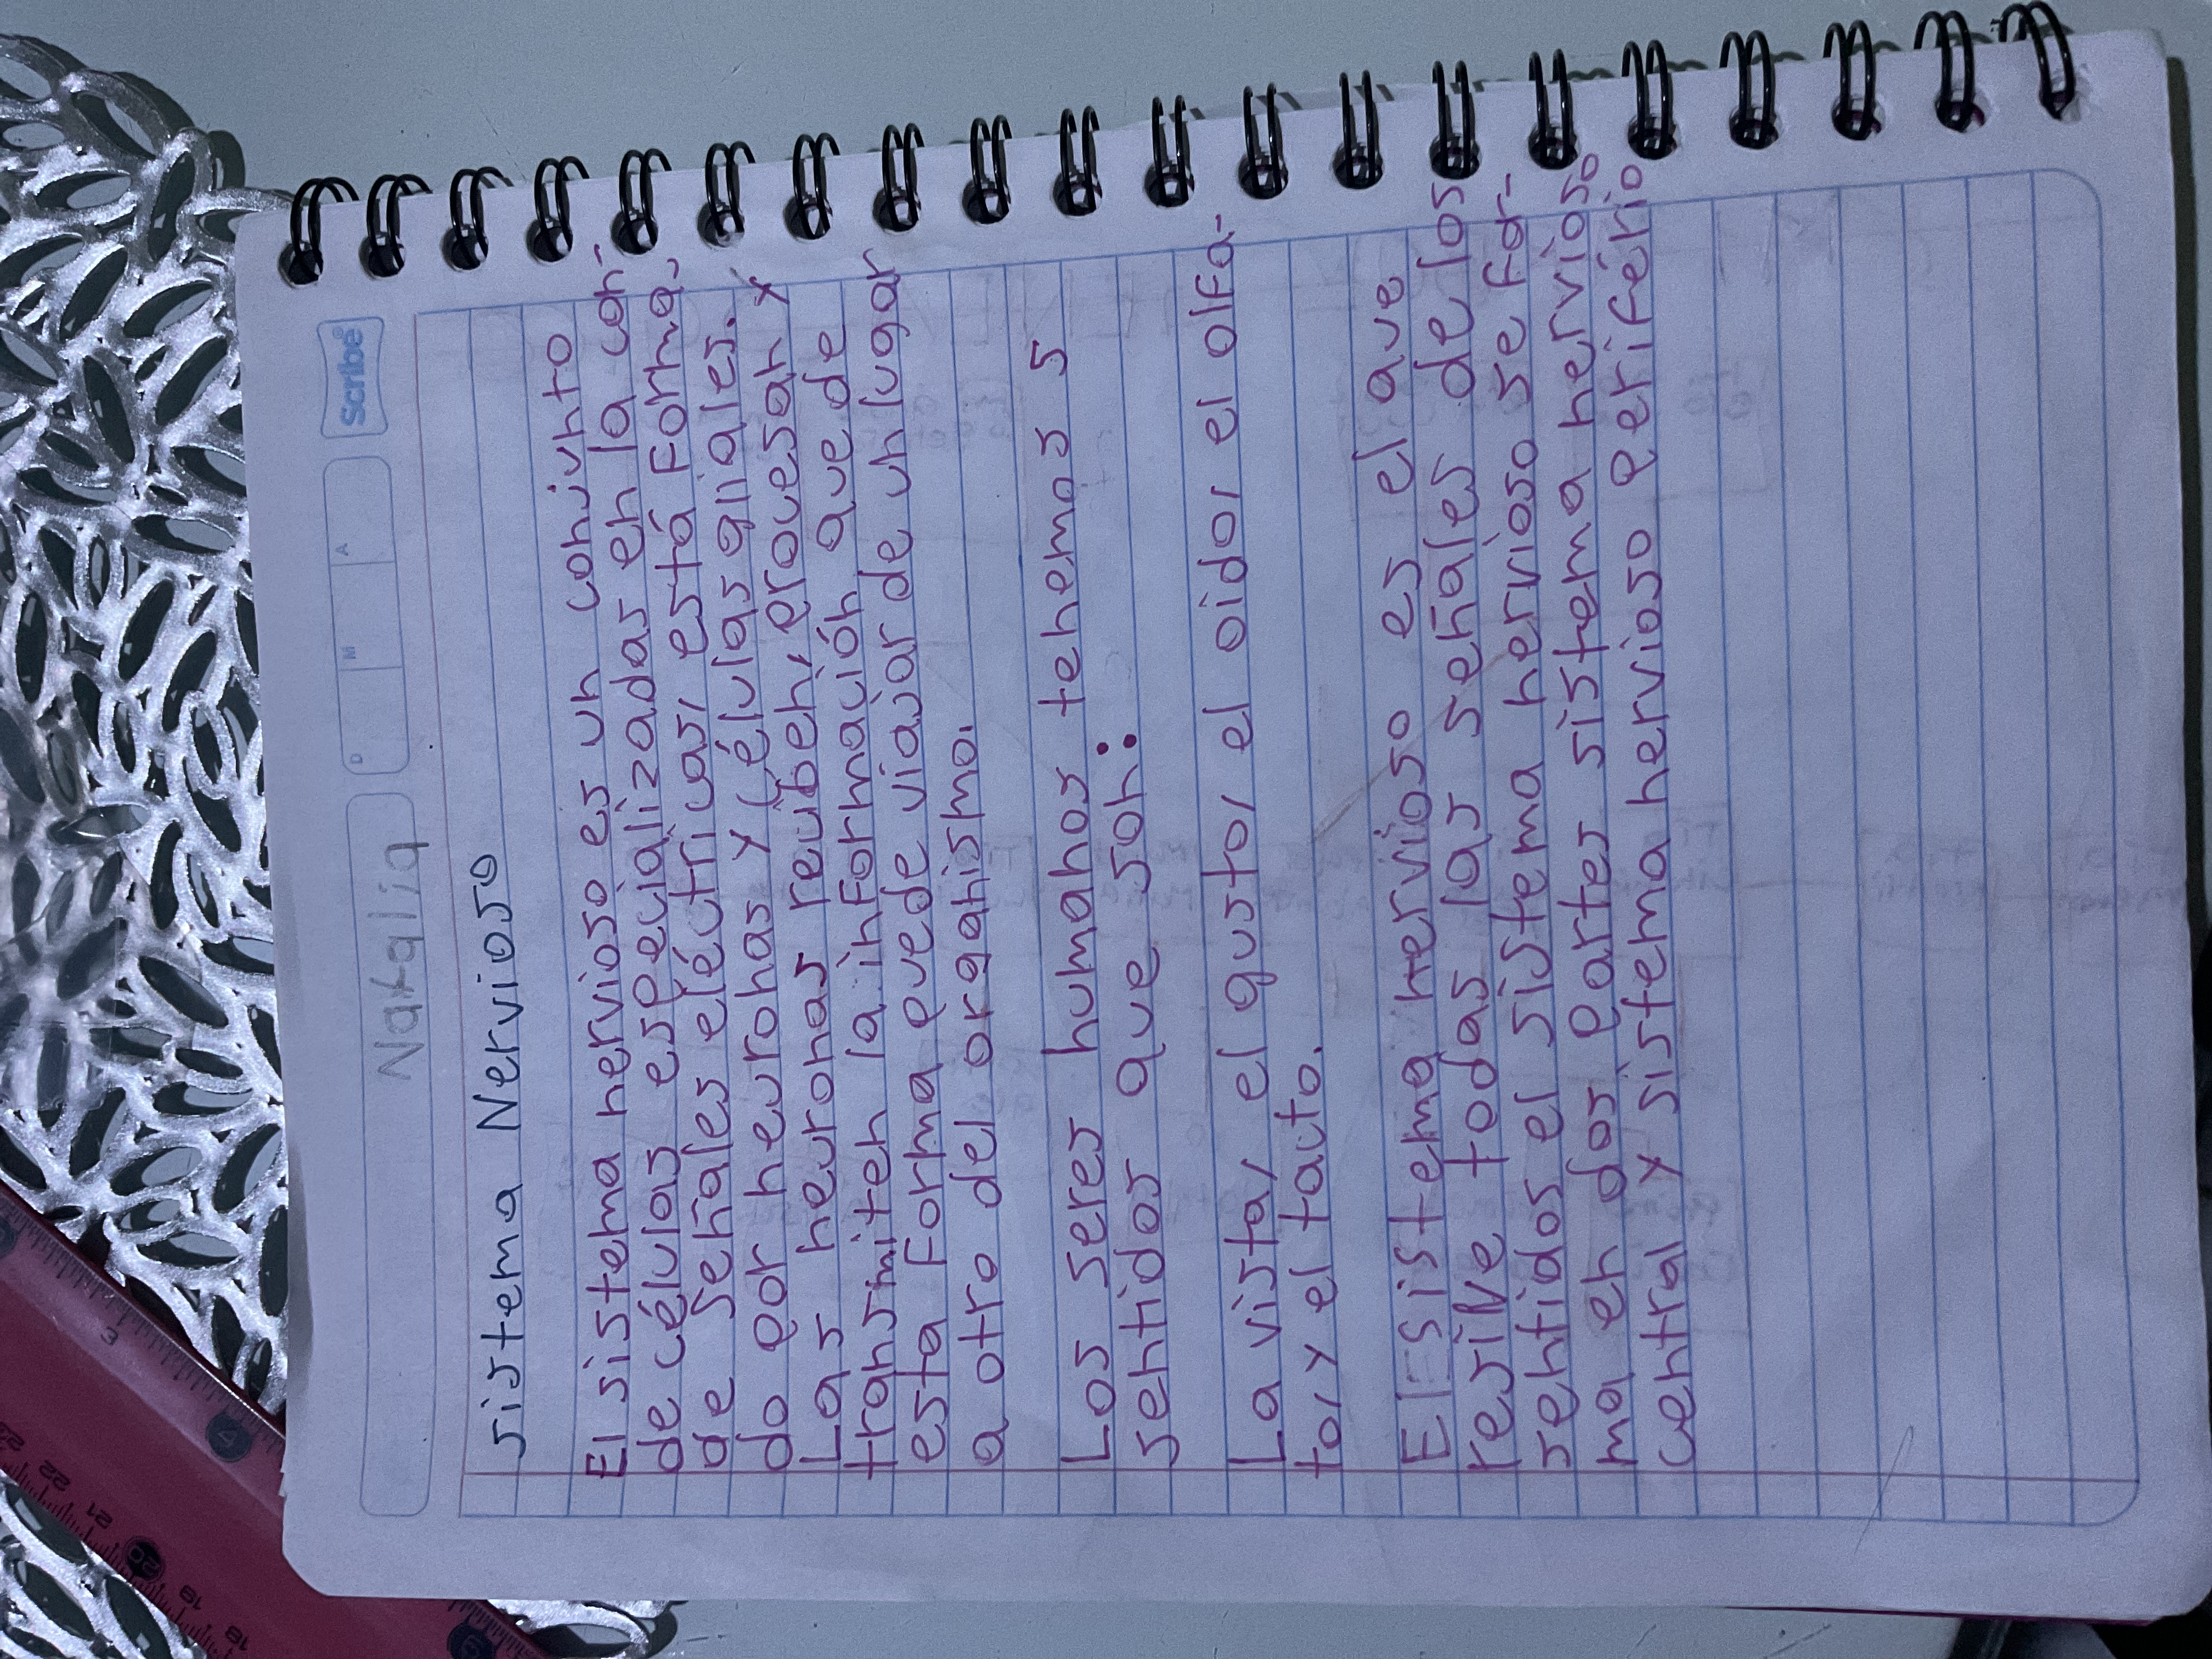 Scribe
D M A
Natalia
Sistema Nervioso
El sistema nervioso es un conjunto
de células especializadas en la con-
de señales eléctricas, está Forma,
do por neuronas y células gliales.
Las neuronas reciben, procesan y
transmiten la información que de
esta Forma puede viajar de un lugar
a otro del organismo.
Los seres humanos tenemos 5
sentidos que son:
La vista, el gusto, el oido, el olfa-
to, y el tacto.
El sistema nervioso es el que
resive todas las señales de los
sentidos el sistema nervioso se for-
ma en dos partes sistema nervioso
central y sistema nervioso perifério
3
4
23
22
21
20
19
18